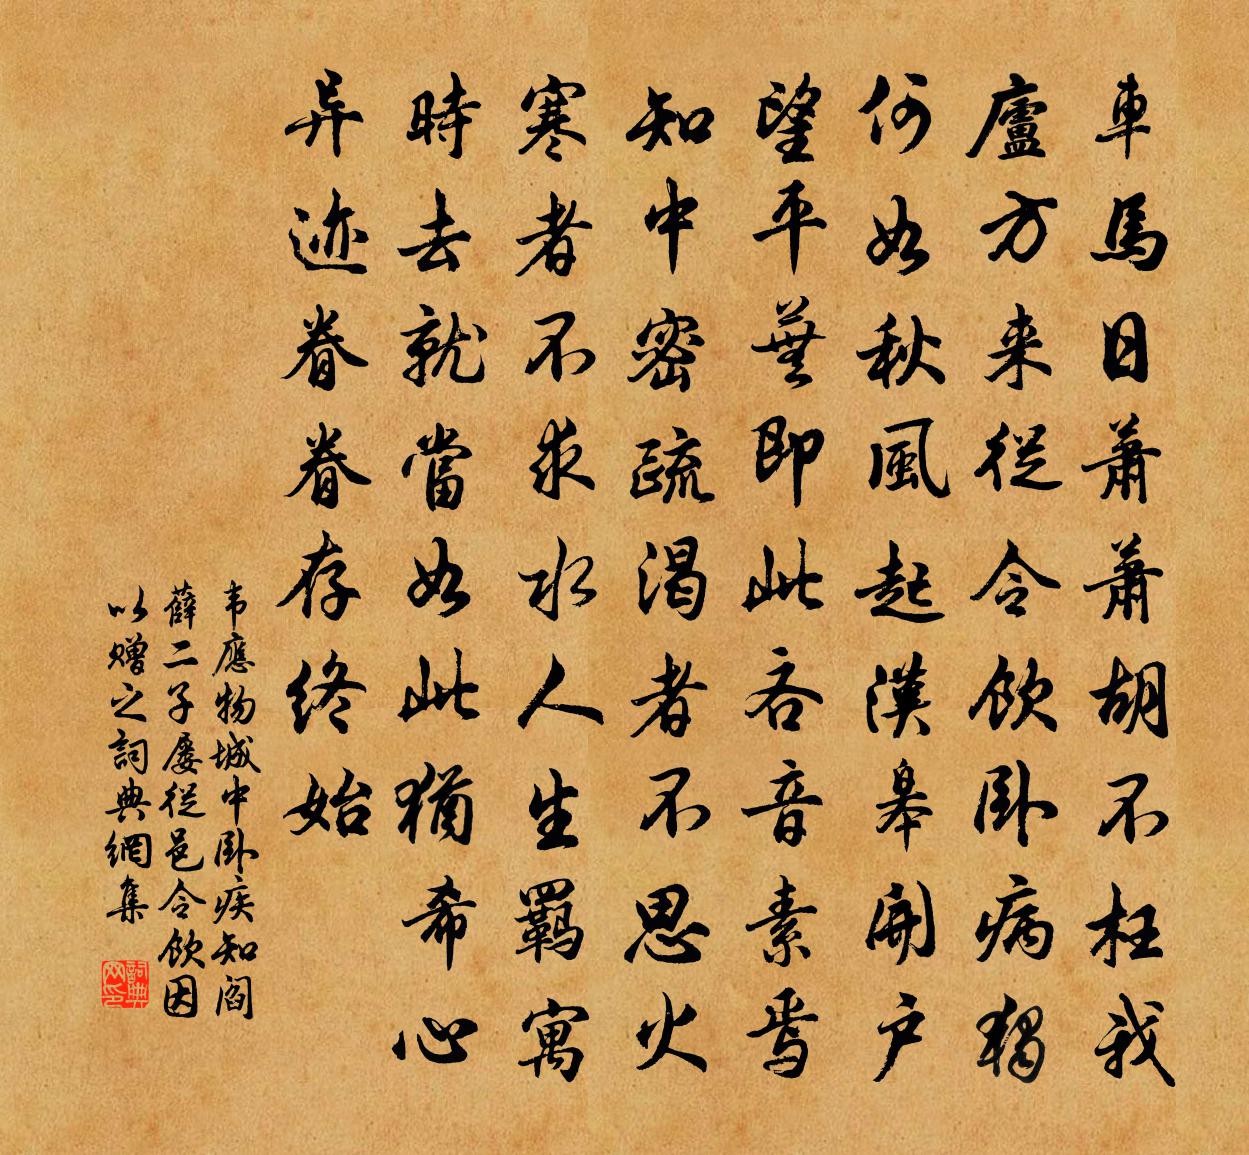 車馬日蕭蕭胡不枉我
廬方来從令飲卧病獨
何如秋風起漢皋開户
望平蕪即此吝音素焉
知中密疏渴者不思火
寒者不求水人生羈寓
時去就當如此猶希心
异迹眷眷存終始
韦應物城中卧疾知阎
薛二子屡從邑令飲因
以赠之詞典網集
詞典网印